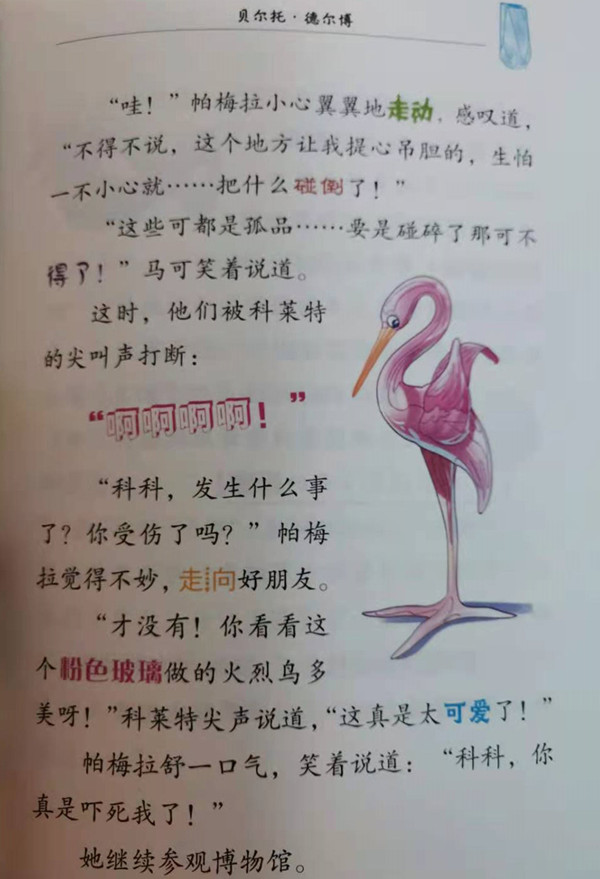 贝尔托·德尔博
“哇！”帕梅拉小心翼翼地走动，感叹道，
“不得不说，这个地方让我提心吊胆的，生怕
一不小心就……把什么碰倒了！”
“这些可都是孤品……要是碰碎了那可不
得了！”马可笑着说道。
这时，他们被科莱特
的尖叫声打断：
“啊啊啊啊！”
“科科，发生什么事
了？你受伤了吗？”帕梅
拉觉得不妙，走向好朋友。
“才没有！你看看这
个粉色玻璃做的火烈鸟多
美呀！”科莱特尖声说道，“这真是太可爱了！”
帕梅拉舒一口气，笑着说道：“科科，你
真是吓死我了！”
她继续参观博物馆。